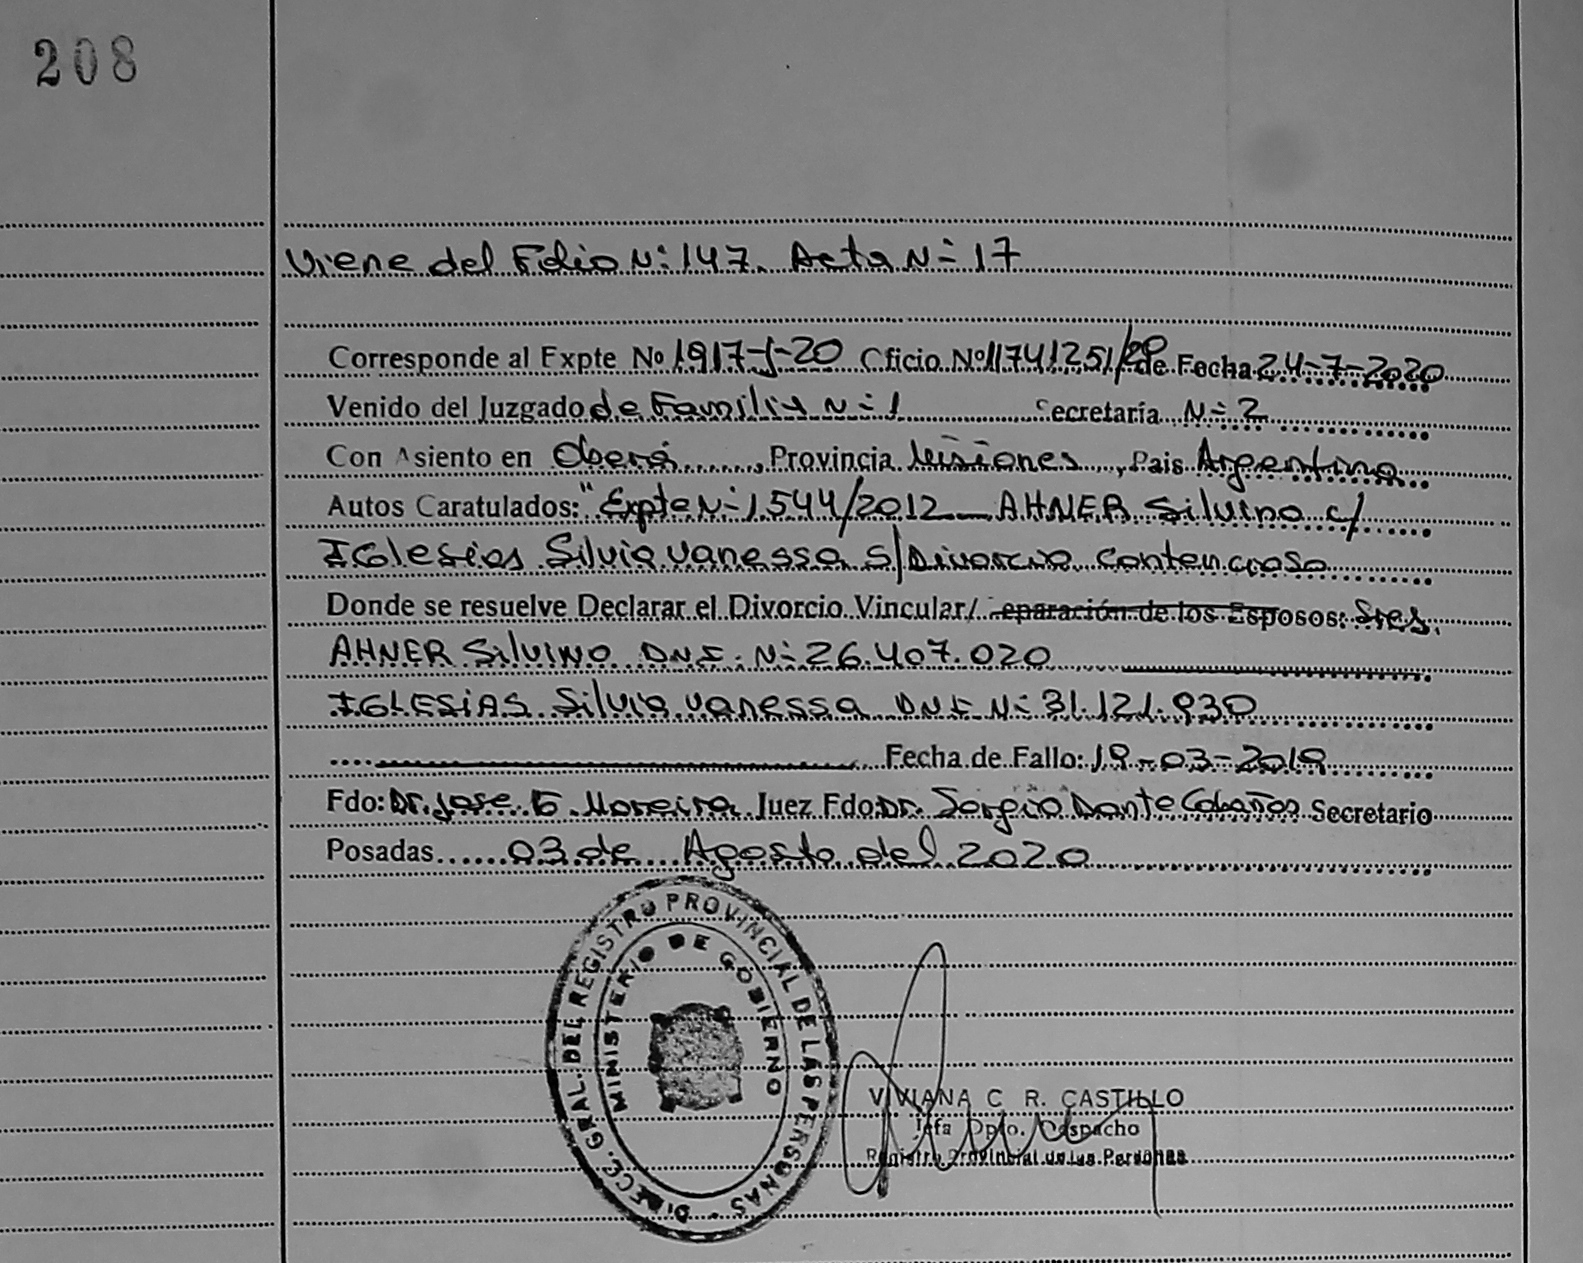 208
Viene del Folio N: 147. Acta N= 17
Corresponde al Expte Nº 1917-J-20 Oficio Nº 11741251/20 de Fecha 24-7-2020
Venido del Juzgado de Familia N=1 Secretaría N=2
Con Asiento en Oberá, Provincia Misiones, Pais Argentina
Autos Caratulados: "Expte N=1544/2012 AHNER Silvino c/
IGlesias Silvia Vanessa S/Divorcio Contencioso
Donde se resuelve Declarar el Divorcio Vincular/ eparación de los Esposos: Sres.
AHNER SilVINO DNI. N=26.407.020
IGLESIAS Silvia Vanessa DNI N=31.121.930
Fecha de Fallo: 19-03-2019
Fdo: Dr. Jose E. Moreira Juez Fdo: Dr. Sergio Dante Secretario
Posadas 03 de Agosto del 2020
DIRECC. GRAL. DEL REGISTRO PROVINCIAL DE LAS PERSONAS
MINISTERIO DE GOBIERNO
VIVIANA C R. CASTILLO
Jefa Dpto. Despacho
Registro Provincial de las Personas